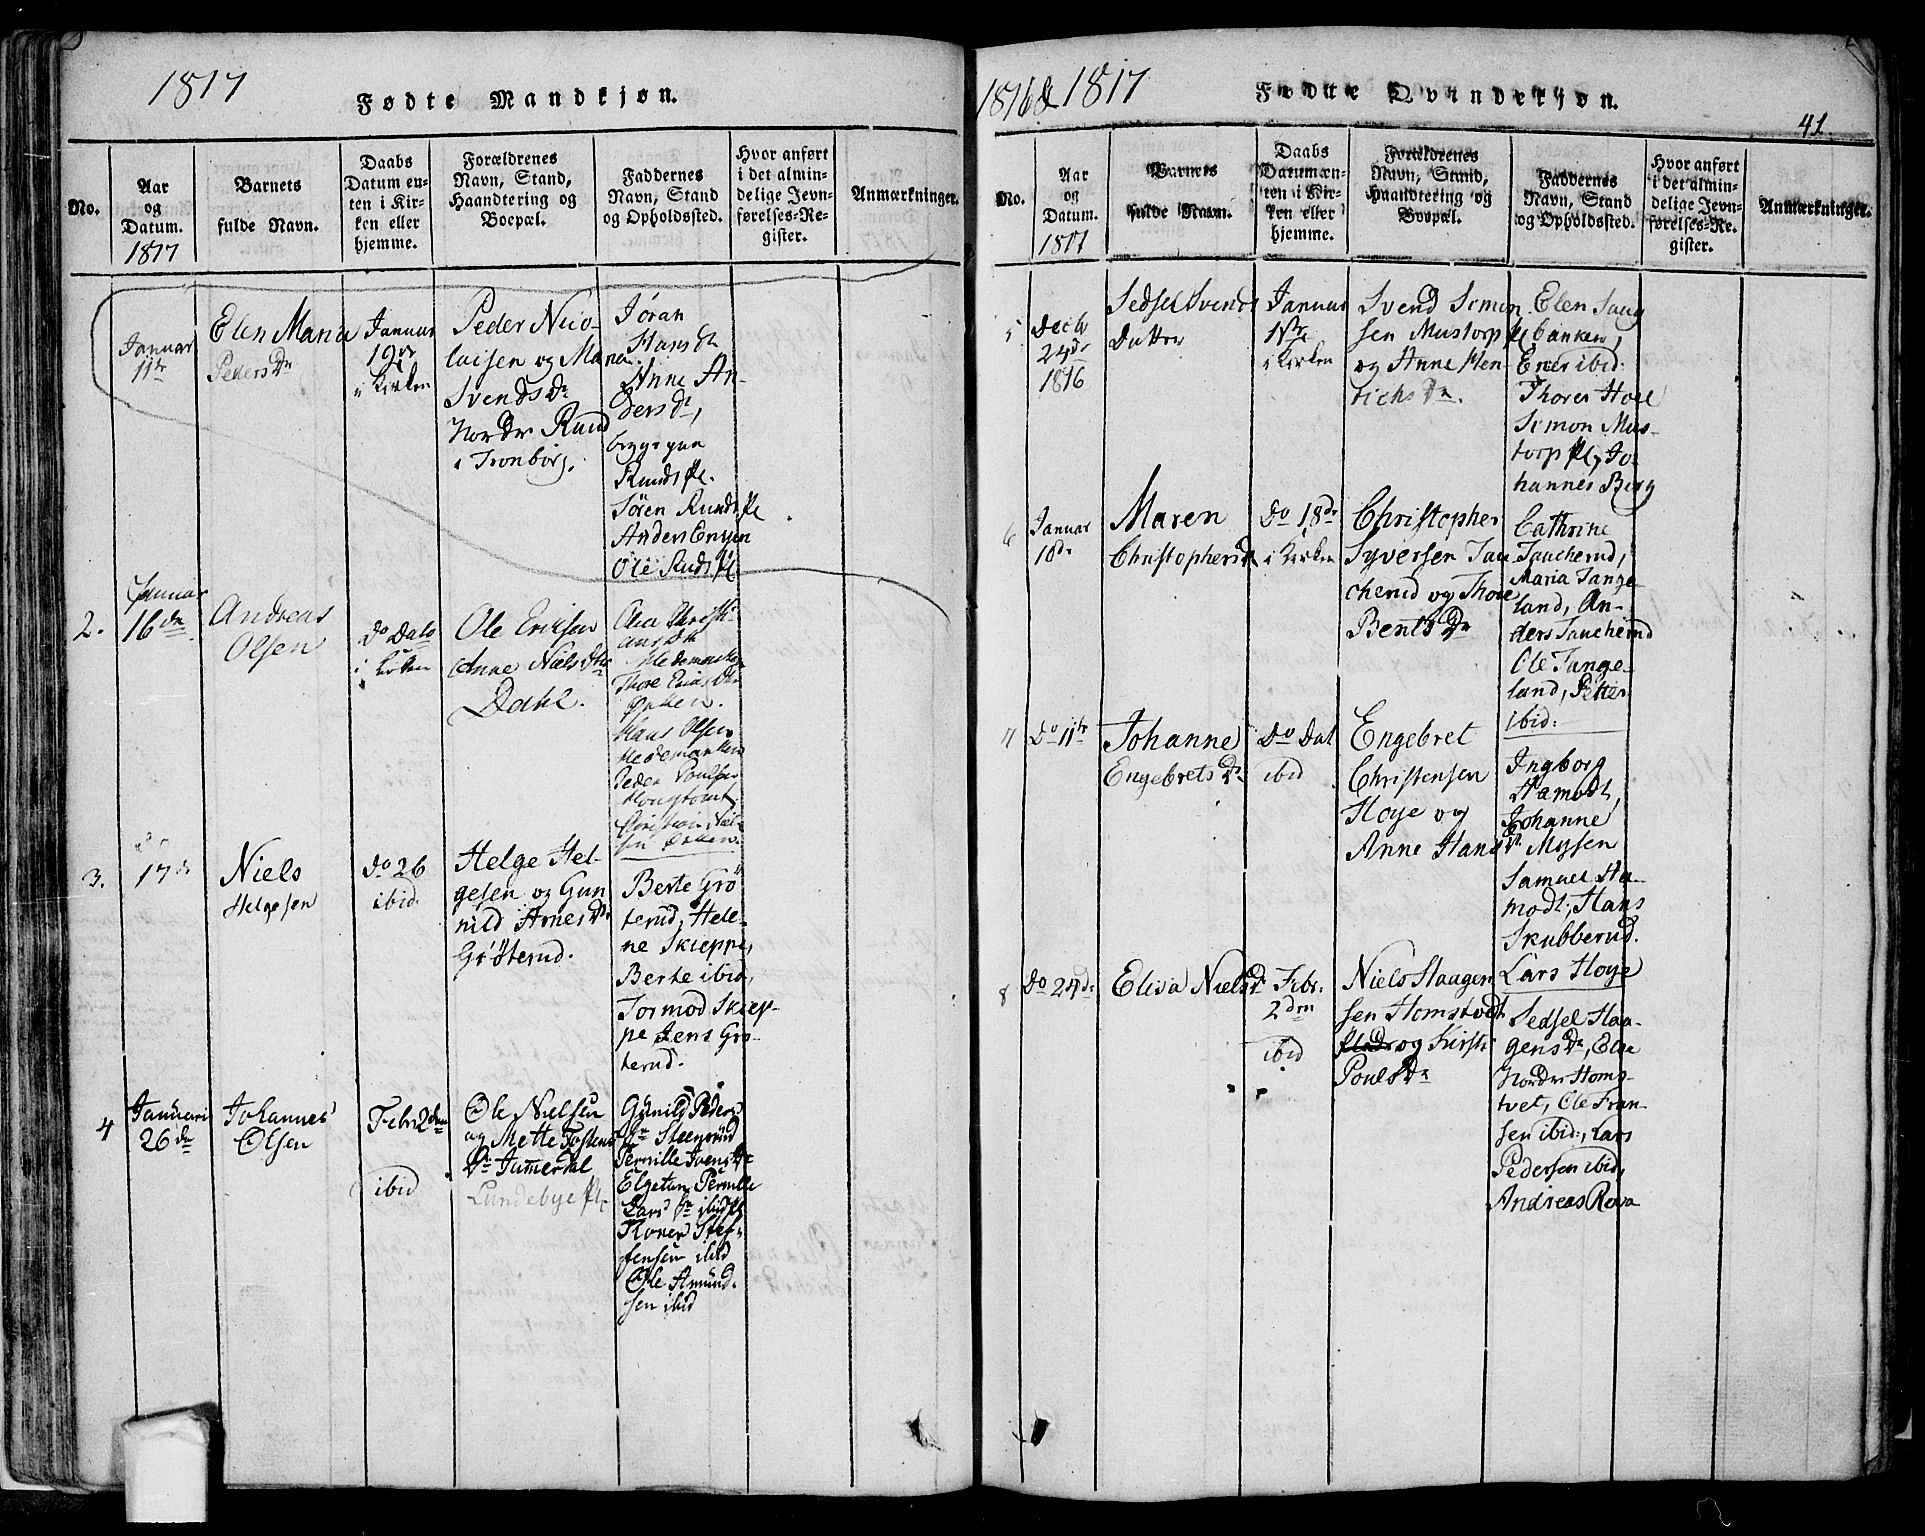 1817
Fødte Mandkjøn.
No.
Aar
og
Datum.
1817
Barnets
fulde Navn.
Daabs
Datum en-
ten i Kir-
ken eller
hjemme.
Forældrenes
Navn, Stand,
Haandtering og
Boepæl.
Faddernes
Navn, Stand
og Opholdssted.
Hvor anført
i det almin-
delige Jevn-
førelses-Re-
gister.
Anmærkninger.
Januar
11te
Elen Maria
Peders Dr
Januar
19de
i Kirken
Peder Nico-
laisen og Maria
Svends Dr
Nordr Rud
i Tronborg.
Jøran
Hans Dr
Anne An-
ders Dr,
begge paa
Runds Pl.
Søren Runds Pl
Anders
Ole Ruds Pl
2.
Januar
16de
Andreas
Olsen
Do Dato
i Kirken
Ole Eriksen
Anne Niels Dtr
Dahl.
Hans Olsen
Hedemarken
3.
17de
Niels
Helgesen
Do 26
ibid.
Helge Hel-
gesen og Gun
nild Arnes Dr
Grøterud.
Berte Grø
terud, Hele-
ne Skieppe,
Berte ibid,
Tormod Skiep-
pe Jens Grø-
terud.
4
Januari
26de
Johannes
Olsen
Febr 2den
ibid
Ole Nielsen
og Mette Tostens
Dr Jamerdal
Lundebye Pl.
Gunild Peders
Dr Steengrud
Pernille Ivens Dr
Elgetun Pernille
Lars Dr ibid
Stef-
fensen ibid
Ole Amund-
sen ibid
1816 & 1817
Fødte Qvindekjøn.
41
No.
Aar
og
Datum.
1817
Barnets
fulde Navn.
Daabs
Datum en-
ten i Kir-
ken eller
hjemme.
Forældrenes
Navn, Stand,
Haandtering og
Boepæl.
Faddernes
Navn, Stand
og Opholdssted.
Hvor anført
i det almin-
delige Jevn-
førelses-Re-
gister.
Anmærkninger.
5
Decbr
24de
1816
Sedsel Svends
Datter
Januar
1ste
i Kirken
Svend Simon
sen Mustorp Pl
og Anne Hen
richs Dr.
Elen Saug
banken,
Ener ibid:
Thorer Hoel
Simon Mus-
torp Pl, Jo
hannes Berg
6
Januar
10de
Maren
Christophers Dr
Do 18de
i Kirken
Christopher
Syversen Tau
cherud og Thore
Bents Dr
Cathrine
Taucherud,
Maria Tange-
land, An-
ders Taucherud
Ole Tange-
land, Petter
ibid:
7
Do 11te
Johanne
Engebrets Dr
Do Dat
ibid
Engebret
Christensen
Hoye og
Anne Hans Dr
Ingborg
Hamodt,
Johanne
Mysen
Samuel Ha-
modt, Hans
Skubberud.
Lars Hoye
8
Do 24de
Elisa Niels Dr
Febr.
2den
ibid
Niels Haagen
sen Homstvedt
og Kirsti
Pouls Dr
Sedsel Haa-
gens Dr, Else
Nordr Homs-
tvet, Ole Fran-
sen ibid:, Lars
Pedersen ibid,
Andreas Rosa